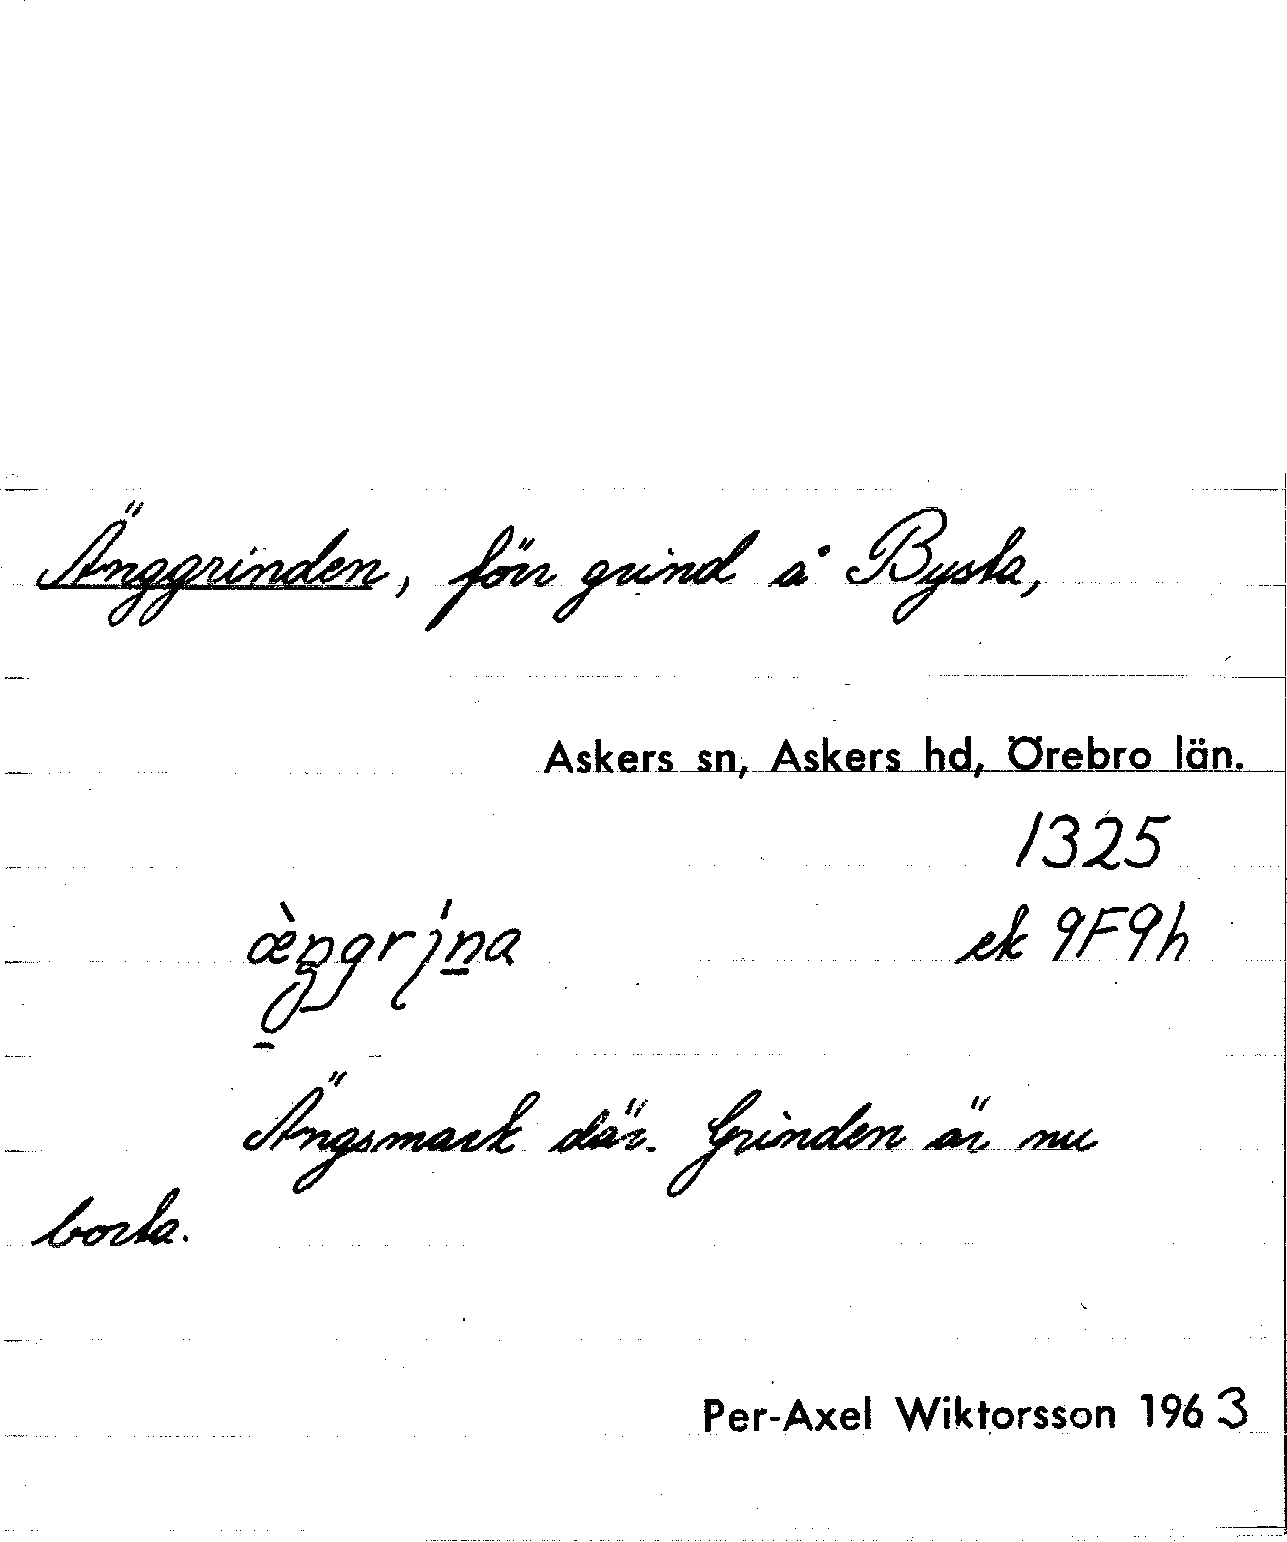 Änggrinden, förr grind å Bysta,
Askers sn, Askers hd, Örebro län.
1325
æ̀ŋgrı̹́na
ek 9F9h
Ängsmark där. Grinden är nu
borta.
Per-Axel Wiktorsson 1963